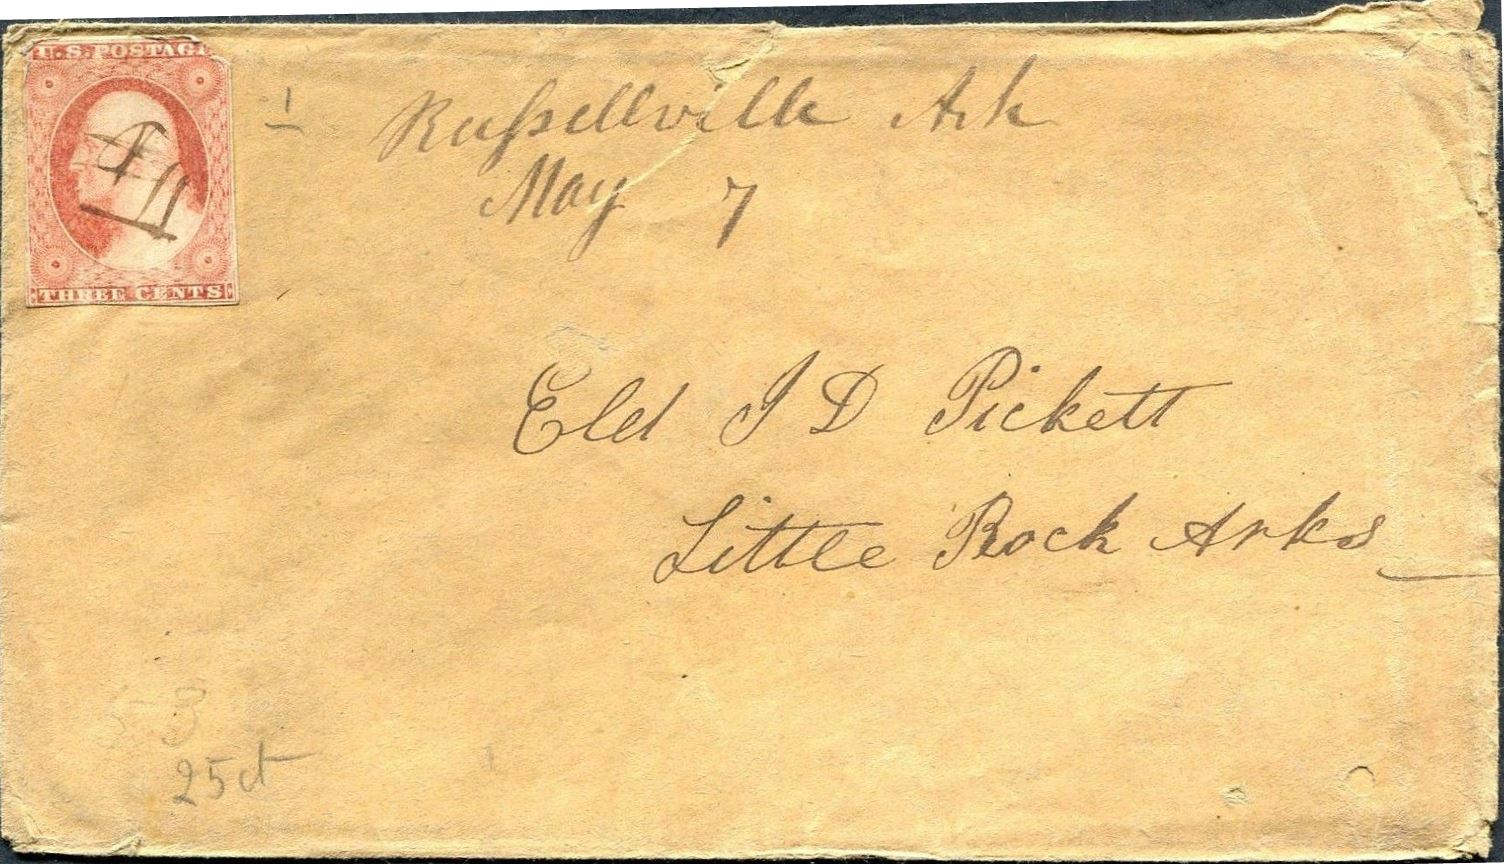 U.S. POSTAGE
Russellville Ark
May 7
THREE CENTS
Eld J D Pickett
Little Rock Arks
25ct